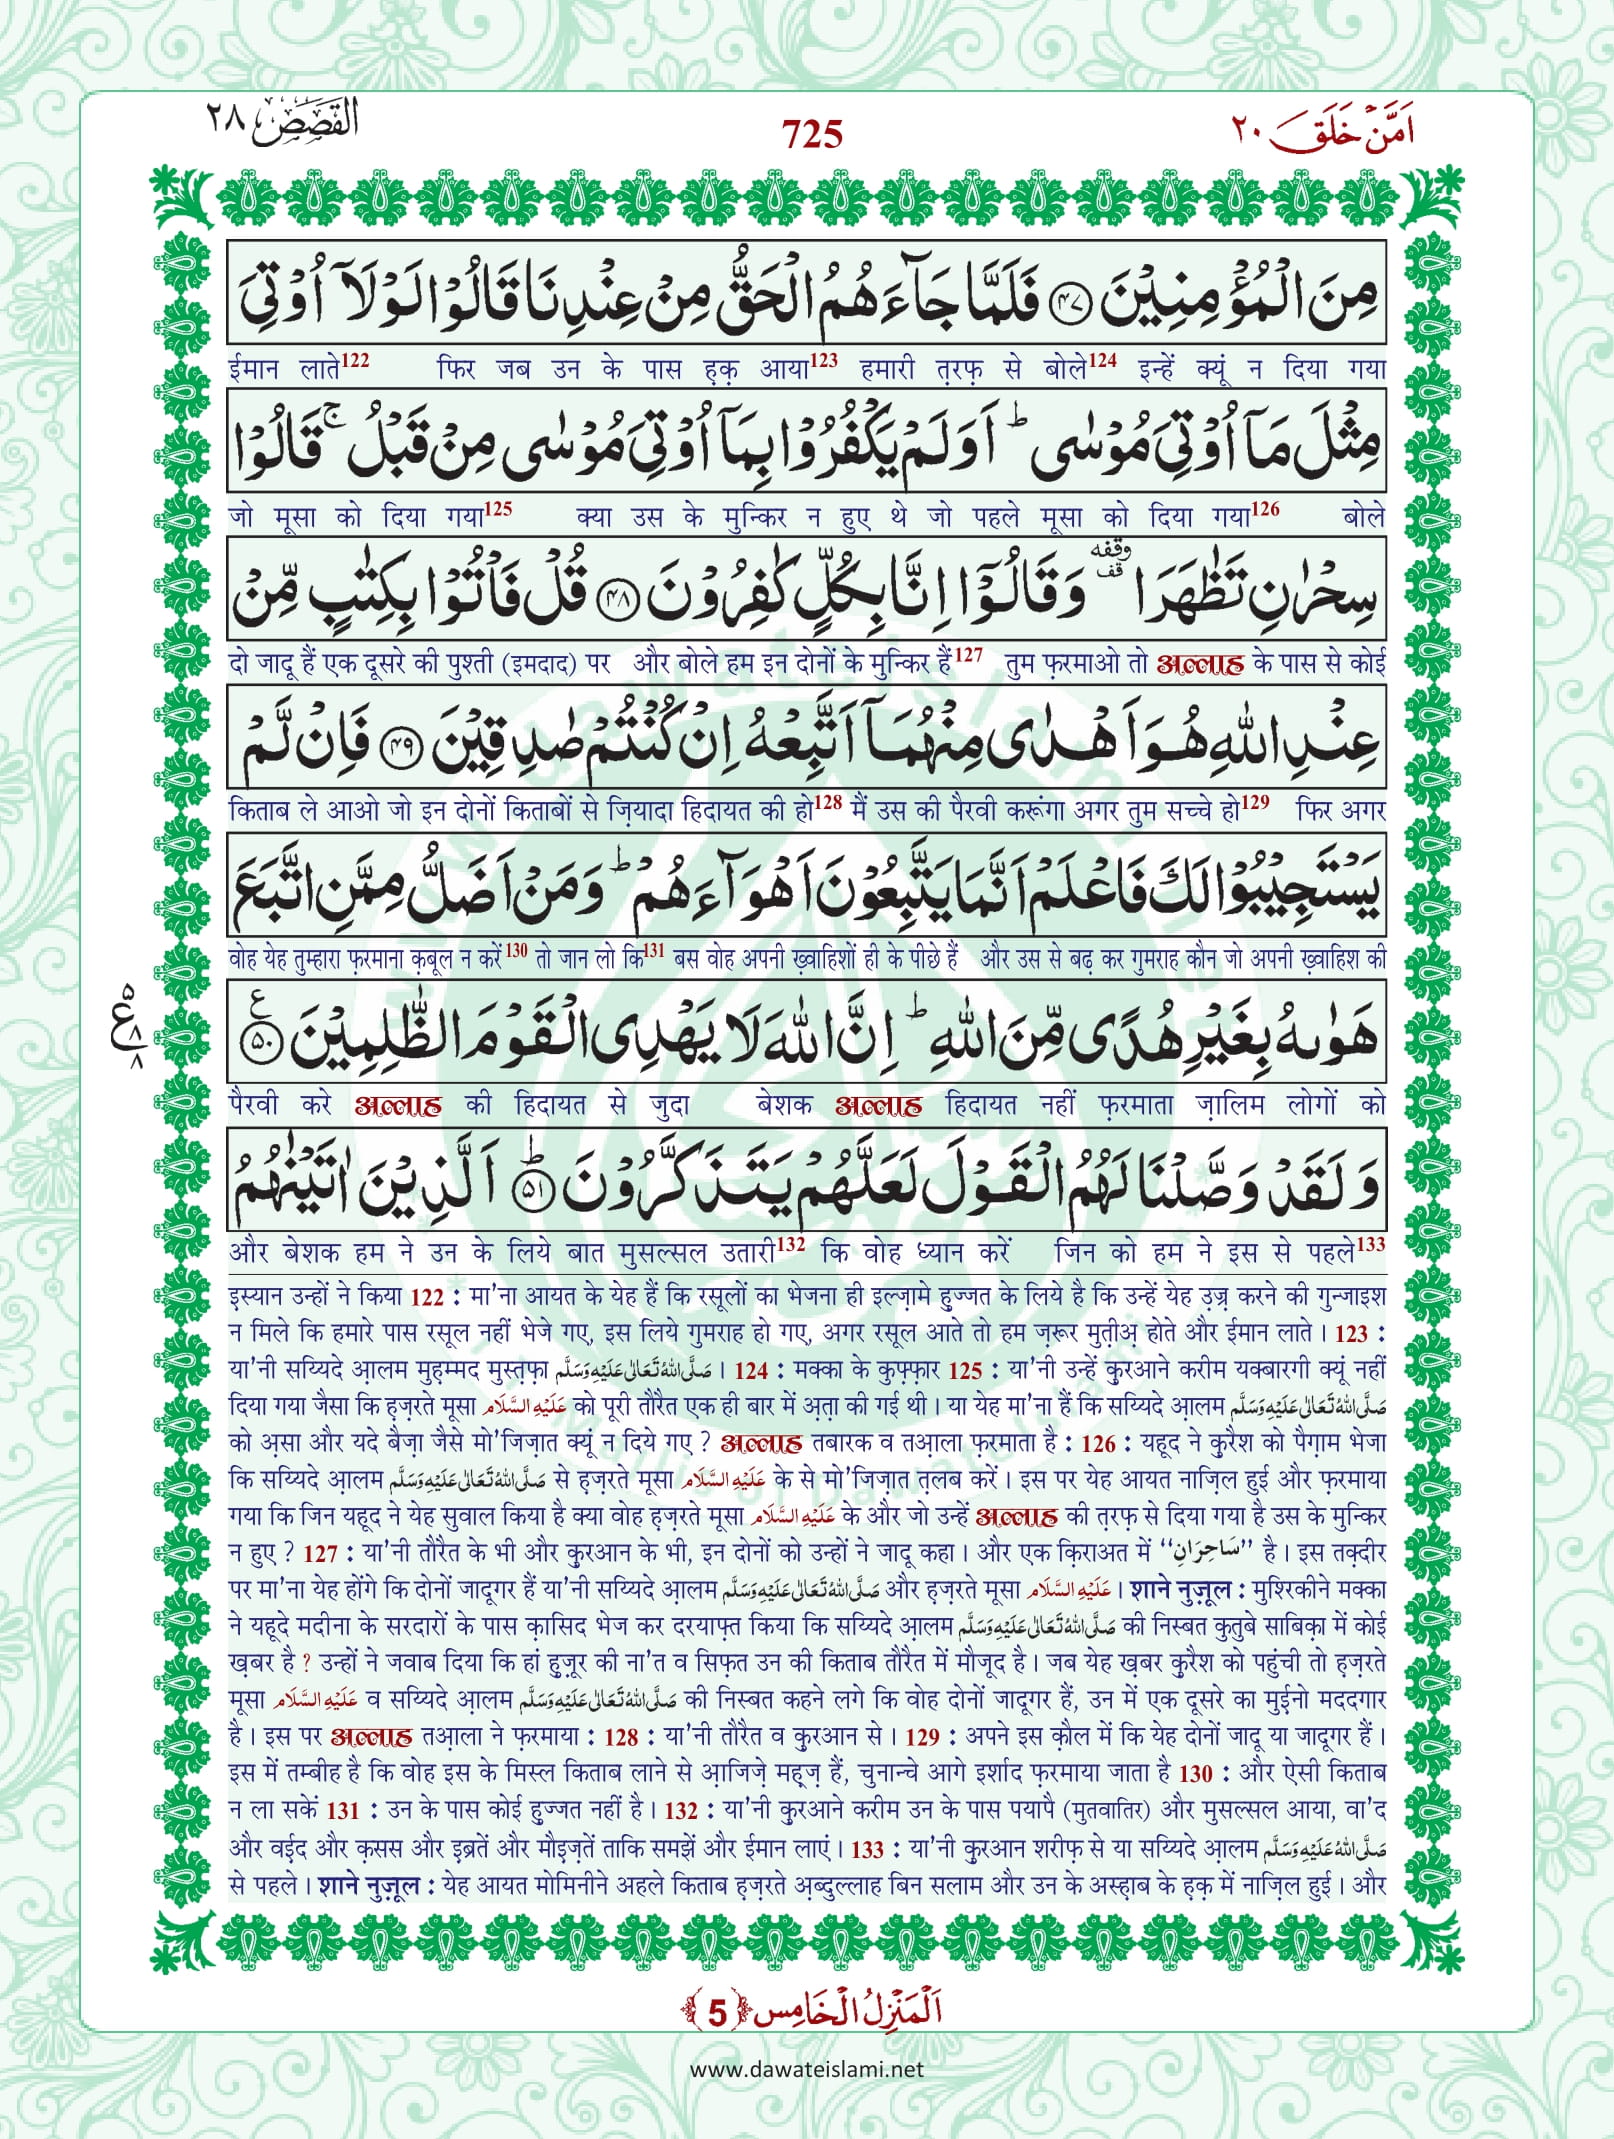 اَمَّنْ خَلَقَ ٢٠
725
القَصَص ٢٨
مِنَ الْمُؤْمِنِيْنَ ﴿۴۷﴾ فَلَمَّا جَآءَهُمُ الْحَقُّ مِنْ عِنْدِنَا قَالُوْا لَوْلَاۤ اُوْتِيَ
ईमान लाते122 फिर जब उन के पास ह़क़ आया123 हमारी त़रफ़ से बोले124 इन्हें क्यूं न दिया गया
مِثْلَ مَاۤ اُوْتِيَ مُوْسٰى ؕ اَوَلَمْ يَكْفُرُوْا بِمَاۤ اُوْتِيَ مُوْسٰى مِنْ قَبْلُ ۚ قَالُوْا
जो मूसा को दिया गया125 क्या उस के मुन्किर न हुए थे जो पहले मूसा को दिया गया126 बोले
سِحْرٰنِ تَظٰهَرَا وقفه قف وَقَالُوْۤا اِنَّا بِكُلٍّ كٰفِرُوْنَ ﴿۴۸﴾ قُلْ فَاْتُوْا بِكِتٰبٍ مِّنْ
दो जादू हैं एक दूसरे की पुश्ती (इमदाद) पर और बोले हम इन दोनों के मुन्किर हैं127 तुम फ़रमाओ तो अल्लाह के पास से कोई
عِنْدِ اللّٰهِ هُوَ اَهْدٰى مِنْهُمَاۤ اَتَّبِعْهُ اِنْ كُنْتُمْ صٰدِقِيْنَ ﴿۴۹﴾ فَاِنْ لَّمْ
किताब ले आओ जो इन दोनों किताबों से ज़ियादा हिदायत की हो128 मैं उस की पैरवी करूंगा अगर तुम सच्चे हो129 फिर अगर
يَسْتَجِيْبُوْا لَكَ فَاعْلَمْ اَنَّمَا يَتَّبِعُوْنَ اَهْوَآءَهُمْ ؕ وَمَنْ اَضَلُّ مِمَّنِ اتَّبَعَ
वोह येह तुम्हारा फ़रमाना क़बूल न करें130 तो जान लो कि131 बस वोह अपनी ख़्वाहिशों ही के पीछे हैं और उस से बढ़ कर गुमराह कौन जो अपनी ख़्वाहिश की
هَوٰىهُ بِغَيْرِ هُدًى مِّنَ اللّٰهِ ؕ اِنَّ اللّٰهَ لَا يَهْدِى الْقَوْمَ الظّٰلِمِيْنَ ﴿۵۰﴾ ع
۵ ع ۸ ۸
पैरवी करे अल्लाह की हिदायत से जुदा बेशक अल्लाह हिदायत नहीं फ़रमाता ज़ालिम लोगों को
وَلَقَدْ وَصَّلْنَا لَهُمُ الْقَوْلَ لَعَلَّهُمْ يَتَذَكَّرُوْنَ ﴿۵۱﴾ؕ اَلَّذِيْنَ اٰتَيْنٰهُمُ
और बेशक हम ने उन के लिये बात मुसल्सल उतारी132 कि वोह ध्यान करें जिन को हम ने इस से पहले133
इस्यान उन्हों ने किया 122 : मा'ना आयत के येह हैं कि रसूलों का भेजना ही इल्ज़ामे हुज्जत के लिये है कि उन्हें येह उज़्र करने की गुन्जाइश
न मिले कि हमारे पास रसूल नहीं भेजे गए, इस लिये गुमराह हो गए, अगर रसूल आते तो हम ज़रूर मुत़ीअ़ होते और ईमान लाते । 123 :
या'नी सय्यिदे आ़लम मुह़म्मद मुस्त़फ़ा صَلَّی اللهُ تَعَالٰی عَلَيْهِ وَسَلَّم । 124 : मक्का के कुफ़्फ़ार 125 : या'नी उन्हें कुरआने करीम यक्बारगी क्यूं नहीं
दिया गया जैसा कि ह़ज़रते मूसा عَلَيْهِ السَّلَام को पूरी तौरैत एक ही बार में अ़त़ा की गई थी । या येह मा'ना हैं कि सय्यिदे आ़लम صَلَّی اللهُ تَعَالٰی عَلَيْهِ وَسَلَّم
को अ़सा और यदे बैज़ा जैसे मो'जिज़ात क्यूं न दिये गए ? अल्लाह तबारक व तआ़ला फ़रमाता है : 126 : यहूद ने कुरैश को पैग़ाम भेजा
कि सय्यिदे आ़लम صَلَّی اللهُ تَعَالٰی عَلَيْهِ وَسَلَّم से ह़ज़रते मूसा عَلَيْهِ السَّلَام के से मो'जिज़ात त़लब करें । इस पर येह आयत नाज़िल हुई और फ़रमाया
गया कि जिन यहूद ने येह सुवाल किया है क्या वोह ह़ज़रते मूसा عَلَيْهِ السَّلَام के और जो उन्हें अल्लाह की त़रफ़ से दिया गया है उस के मुन्किर
न हुए ? 127 : या'नी तौरैत के भी और कुरआन के भी, इन दोनों को उन्हों ने जादू कहा । और एक क़िराअत में ‘‘سَاحِرَانِ’’ है । इस तक़्दीर
पर मा'ना येह होंगे कि दोनों जादूगर हैं या'नी सय्यिदे आ़लम صَلَّی اللهُ تَعَالٰی عَلَيْهِ وَسَلَّم और ह़ज़रते मूसा عَلَيْهِ السَّلَام । शाने नुज़ूल : मुश्रिकीने मक्का
ने यहूदे मदीना के सरदारों के पास क़ासिद भेज कर दरयाफ़्त किया कि सय्यिदे आ़लम صَلَّی اللهُ تَعَالٰی عَلَيْهِ وَسَلَّم की निस्बत कुतुबे साबिक़ा में कोई
ख़बर है ? उन्हों ने जवाब दिया कि हां हुज़ूर की ना'त व सिफ़त उन की किताब तौरैत में मौजूद है । जब येह ख़बर कुरैश को पहुंची तो ह़ज़रते
मूसा عَلَيْهِ السَّلَام व सय्यिदे आ़लम صَلَّی اللهُ تَعَالٰی عَلَيْهِ وَسَلَّم की निस्बत कहने लगे कि वोह दोनों जादूगर हैं, उन में एक दूसरे का मुईनो मददगार
है । इस पर अल्लाह तआ़ला ने फ़रमाया : 128 : या'नी तौरैत व कुरआन से । 129 : अपने इस क़ौल में कि येह दोनों जादू या जादूगर हैं ।
इस में तम्बीह है कि वोह इस के मिस्ल किताब लाने से आ़जिज़े मह़्ज़ हैं, चुनान्चे आगे इर्शाद फ़रमाया जाता है 130 : और ऐसी किताब
न ला सकें 131 : उन के पास कोई हुज्जत नहीं है । 132 : या'नी कुरआने करीम उन के पास पयापै (मुतवातिर) और मुसल्सल आया, वा'द
और वईद और क़सस और इब्रतें और मौइज़तें ताकि समझें और ईमान लाएं । 133 : या'नी कुरआन शरीफ़ से या सय्यिदे आ़लम صَلَّی اللهُ عَلَيْهِ وَسَلَّم
से पहले । शाने नुज़ूल : येह आयत मोमिनीने अहले किताब ह़ज़रते अ़ब्दुल्लाह बिन सलाम और उन के अस्ह़ाब के ह़क़ में नाज़िल हुई । और
اَلْمَنْزِلُ الْخَامِس ﴿5﴾
www.dawateislami.net